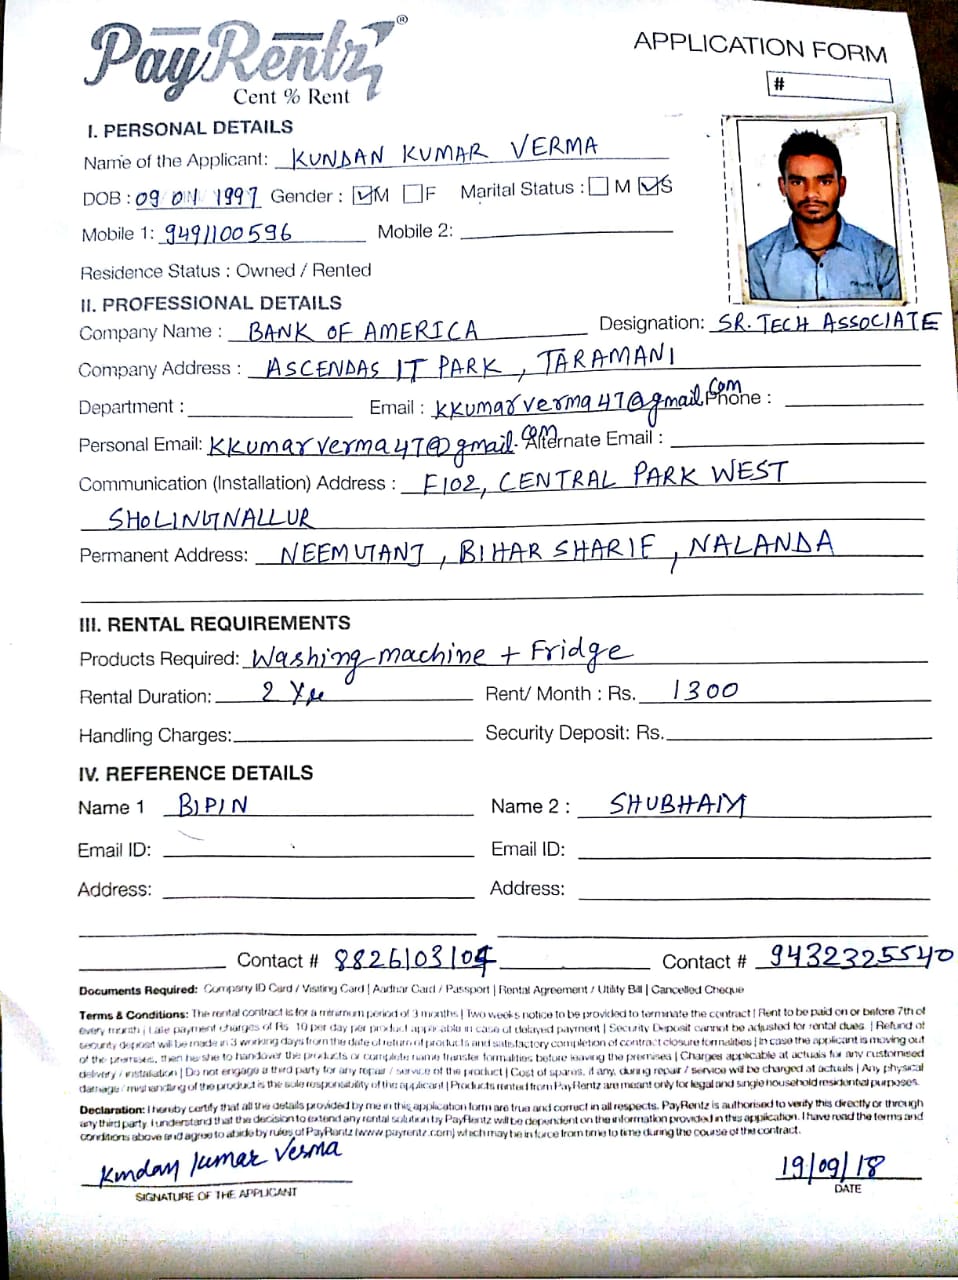 PayRentz®
Cent % Rent
APPLICATION FORM
#
I. PERSONAL DETAILS
Name of the Applicant: KUNDAN KUMAR VERMA
DOB : 09 01 1997 Gender : ☑M ☐F Marital Status : ☐ M ☑S
Mobile 1: 9491100596 Mobile 2:
Residence Status : Owned / Rented
II. PROFESSIONAL DETAILS
Company Name : BANK OF AMERICA Designation: SR. TECH ASSOCIATE
Company Address : ASCENDAS IT PARK , TARAMANI
Department : Email : kkumarverma47@gmail.com Phone :
Personal Email: kkumarverma47@gmail.com Alternate Email :
Communication (Installation) Address : F102, CENTRAL PARK WEST
SHOLINGNALLUR
Permanent Address: NEEMGANJ , BIHAR SHARIF , NALANDA
III. RENTAL REQUIREMENTS
Products Required: Washing machine + Fridge
Rental Duration: 2 Rent/ Month : Rs. 1300
Handling Charges: Security Deposit: Rs.
IV. REFERENCE DETAILS
Name 1 BIPIN Name 2 : SHUBHAM
Email ID: Email ID:
Address: Address:
Contact # 8826103104 Contact # 9432325540
Documents Required: Company ID Card / Visiting Card | Aadhar Card / Passport | Rental Agreement / Utility Bill | Cancelled Cheque
Terms & Conditions: The rental contract is for a minimum period of 3 months | Two weeks notice to be provided to terminate the contract | Rent to be paid on or before 7th of
every month | Late payment charges of Rs. 10 per day per product applicable in case of delayed payment | Security Deposit cannot be adjusted for rental dues. | Refund of
security deposit will be made in 3 working days from the date of return of products and satisfactory completion of contract closure formalities | In case the applicant is moving out
of the premises, then he/she to handover the products or complete name transfer formalities before leaving the premises | Charges applicable at actuals for any customised
delivery / installation | Do not engage a third party for any repair / service of the product | Cost of spares, if any, during repair / service will be charged at actuals | Any physical
damage / mishandling of the product is the sole responsibility of the applicant | Products rented from PayRentz are meant only for legal and single household residential purposes.
Declaration: I hereby certify that all the details provided by me in this application form are true and correct in all respects. PayRentz is authorised to verify this directly or through
any third party. I understand that the decision to extend any rental solution by PayRentz will be dependent on the information provided in this application. I have read the terms and
conditions above and agree to abide by rules of PayRentz (www.payrentz.com) which may be in force from time to time during the course of the contract.
Kundan Kumar Verma 19/09/18
SIGNATURE OF THE APPLICANT DATE